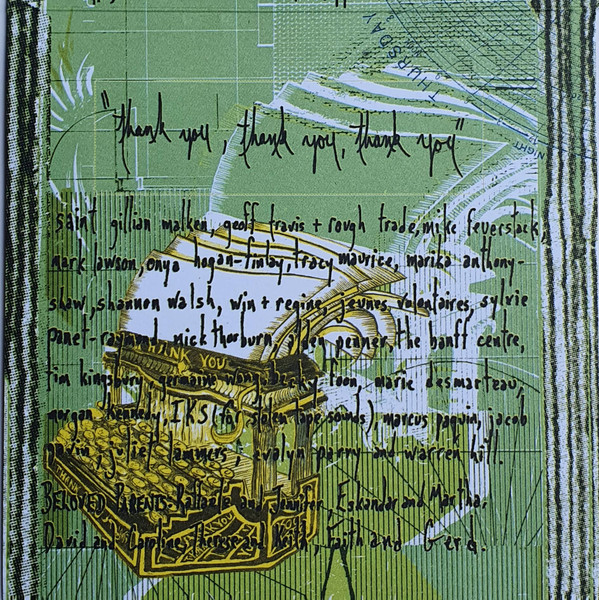 THURSDAY
NIGHT
"thank you, thank you, thank you"
saint gillian malken, geoff travis + rough trade, mike feuerstack,
mark lawson, onya hogan-finlay, tracy maurice, marika anthony-
shaw, shannon walsh, win + regine, jeunes volontaires, sylvie
panet-raymond, nick thorburn, alden penner, the banff centre,
tim kingsbury, germaine wong, becky foon, marie desmarteau,
morgan kennedy, IKS (for stolen tape sounds), marcus paquin, jacob
gavin, juliet lammers; evalyn parry and warren hill.
BELOVED PARENTS: Raffaele and Jennifer, Eskandar and Martha,
David and Caroline, Therese and Keith, Faith and Gerd.
THANK YOU